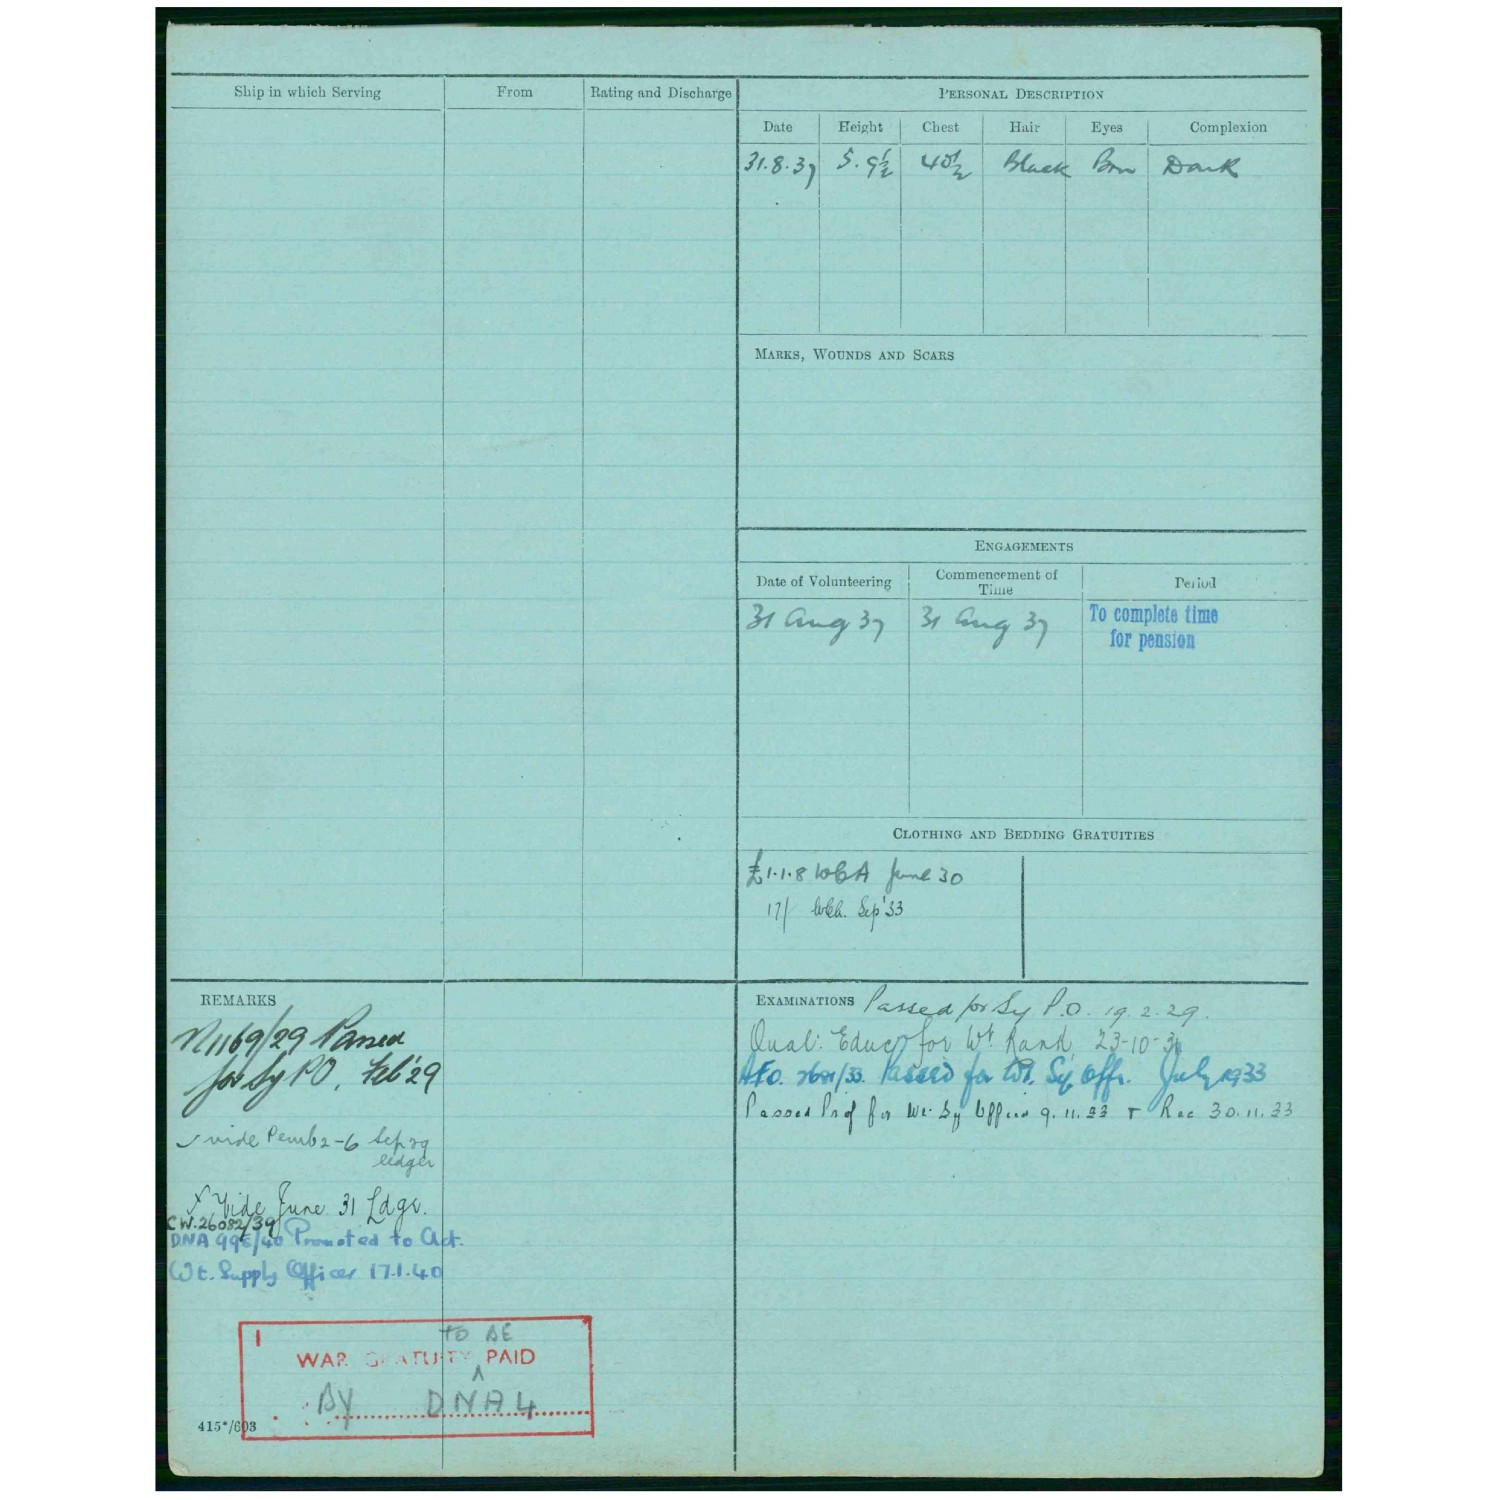 Ship in which Serving From Rating and Discharge
PERSONAL DESCRIPTION
Date Height Chest Hair Eyes Complexion
31.8.37 5. 9½ 40½ Black Brn Dark
MARKS, WOUNDS AND SCARS
ENGAGEMENTS
Date of Volunteering Commencement of Time Period
31 Aug 37 31 Aug 37 To complete time
for pension
CLOTHING AND BEDDING GRATUITIES
£1.1.8 June 30
17/ Sep '33
REMARKS
N1169/29 Passed
for Sy PO. Feb '29
vide Pemb 2-6 Sep 29
ledger
X Vide June 31 Ldgr.
CW.26082/39
DNA 995/40 Promoted to Act.
Wt. Supply Officer 17.1.40
1 TO BE
WAR GRATUITY ^ PAID
BY DNA 4
415*/603
EXAMINATIONS Passed for Sy P.O. 19.2.29.
Qual: Educ for Wt Rank, 23-10-
AFO. /33. Passed for Wt. Sy. Offr. July 1933
Passed Prof for Wt. Sy Officer 9.11.33 + Rec 30.11.33